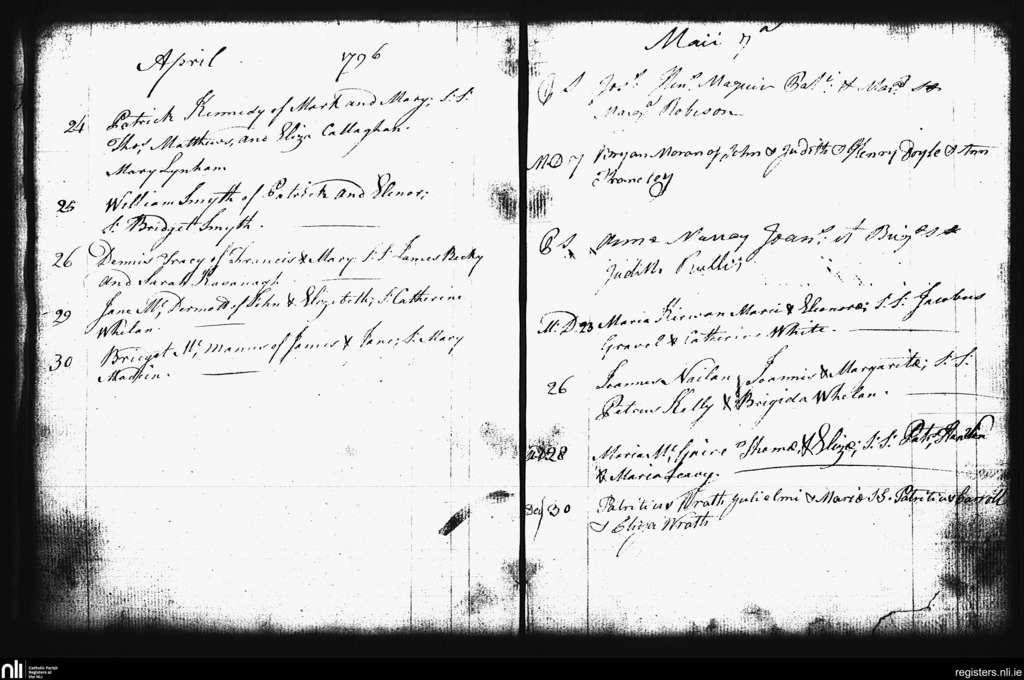 April 1796
24 Patrick Kennedy of Mark and Mary; S.S.
Thos. Matthews, and Eliza Callaghan.
Mary Lynham
25 William Smyth of Patrick and Elenor;
S. Bridget Smyth.
26 Dennis Tracy of Francis & Mary. S.S. James Becky
and Sarah Kavanagh
29 Jane Mc. Dermott of John & Elizabeth; S. Catherine
Whelan.
30 Bridget Mc. manus of James & Jane; S. Mary
Madkin.
Maii
Maguire & Mar.
Marg. Robeson
M.D 7 Bryan Moran of John & Judith S Henry Doyle & Ann
Anna Murray Joan. et Brig.
Judith
M.D. 23 Maria Kirwan Marci & Eleonora; S.S. Jacobus
Gravel & Catherine White.
26 Joannes Nailan Joannis & Margaritæ; S.S.
Patrus Kelly & Brigida Whelan.
28 Maria Mc. Guire Thomæ & Elizæ; S.S. Pat. Hanlan
& Maria Leavy.
30 Patritius Wrath Julielmi & Mariæ S.S. Patritius Carroll
& Eliza Wrath
nli Catholic Parish
Registers at
the NLI
registers.nli.ie